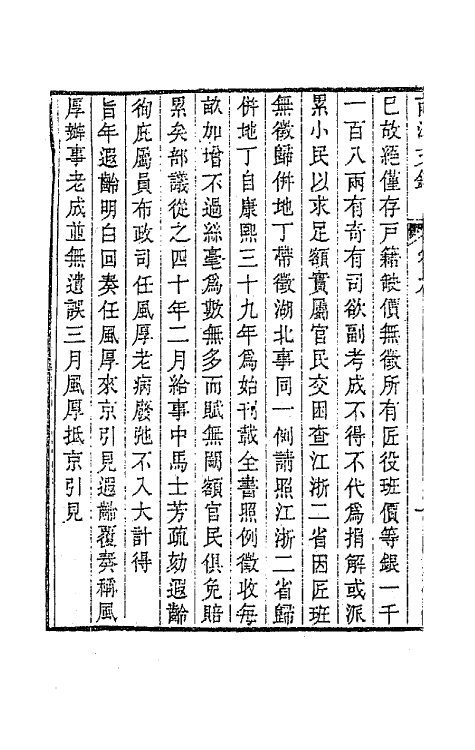 已故絕僅存戸籍缺價無徵所有匠役班價等銀一千
一百八兩有奇有司欲副考成不得不代為捐解或派
累小民以求足額實屬官民交困查江浙二省因匠班
無徵歸併地丁帶徵湖北事同一例請照江浙二省歸
併地丁自康熙三十九年為始刊載全書照例徵收每
畝加增不過絲毫為數無多而賦無闕額官民俱免賠
累矣部議從之四十年二月給事中馬士芳疏劾遐齡
徇庇屬員布政司任風厚老病廢弛不入大計得
旨年遐齡明白回奏任風厚來京引見遐齡覆奏稱風
厚辦事老成並無遺誤三月風厚抵京引見